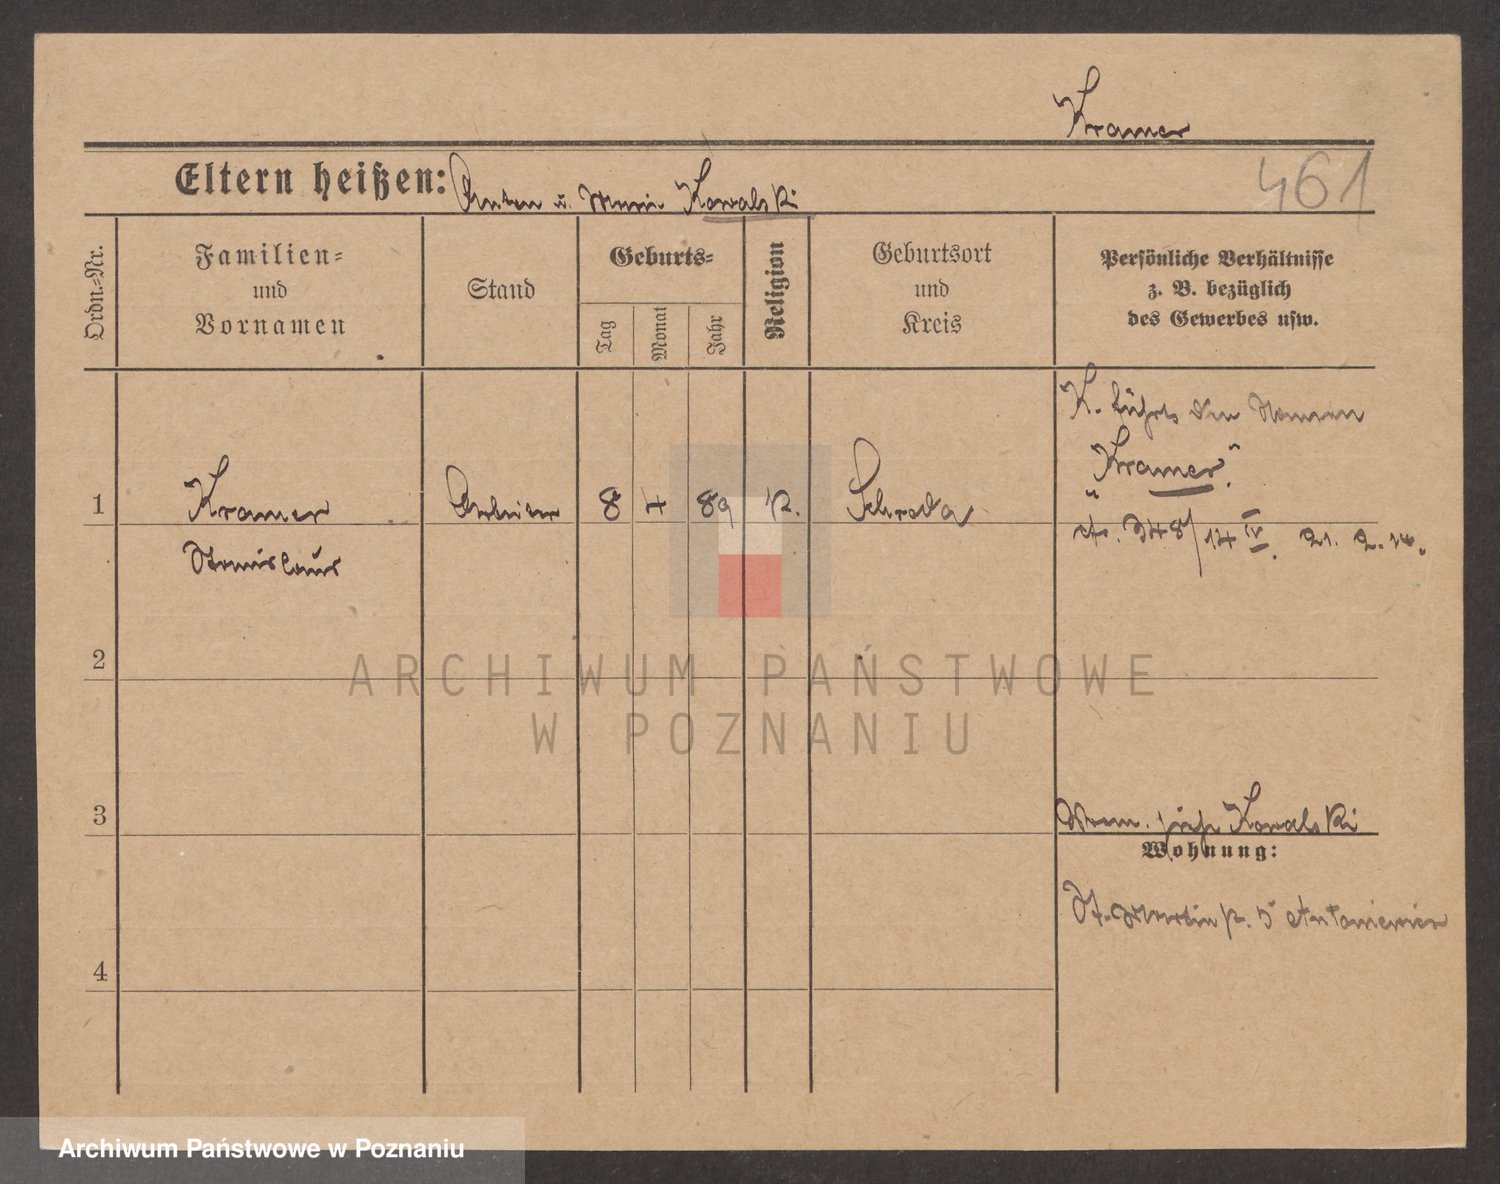 Kramer
Eltern heißen: Anton u. Marie Kowalski
461
Ordn.-Nr.
Familien-
und
Vornamen
Stand
Geburts-
Tag
Monat
Jahr
Religion
Geburtsort
und
Kreis
Persönliche Verhältnisse
z. B. bezüglich
des Gewerbes usw.
K. führt den Namen
"Kramer".
1 Kramer Arbeiter 8 4 89 k. Schroda
Stanislaus
348/14 IV. 21. 2. 14.
2
3
Anm. siehe Kowalski
Wohnung:
St. Martin 5
4
ARCHIWUM PAŃSTWOWE
W POZNANIU
Archiwum Państwowe w Poznaniu